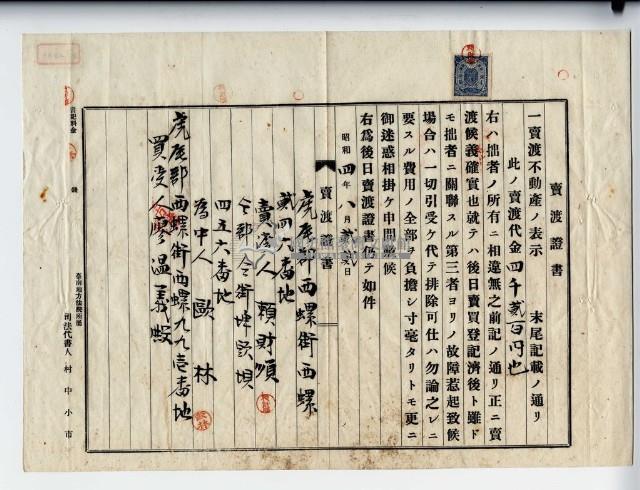 賣渡證書
一賣渡不動產ノ表示 末尾記載ノ通リ
此ノ賣渡代金四千貳百円也
右ハ拙者ノ所有ニ相違無之前記ノ通リ正ニ賣
渡候義確實也就テハ後日賣買登記濟後ト雖ド
モ拙者ニ關聯スル第三者ヨリノ故障惹起致候
場合ハ一切引受ケ代テ排除可仕ハ勿論之レニ
要スル費用ノ全部ヲ負擔シ寸毫タリトモ更ニ
御迷惑相掛ケ申間敷候
右爲後日賣渡證書仍テ如件
昭和四年八月貳 日
賣渡證書
虎尾郡西螺街西螺
貳四六番地
賣渡人 賴財順
仝郡仝街埤頭垻
四五六番地
爲中人 歐林
虎尾郡西螺街西螺九九壱番地
買受人廖温義殿
書記料金 錢
臺南地方法院所屬
司法代書人 村中小市